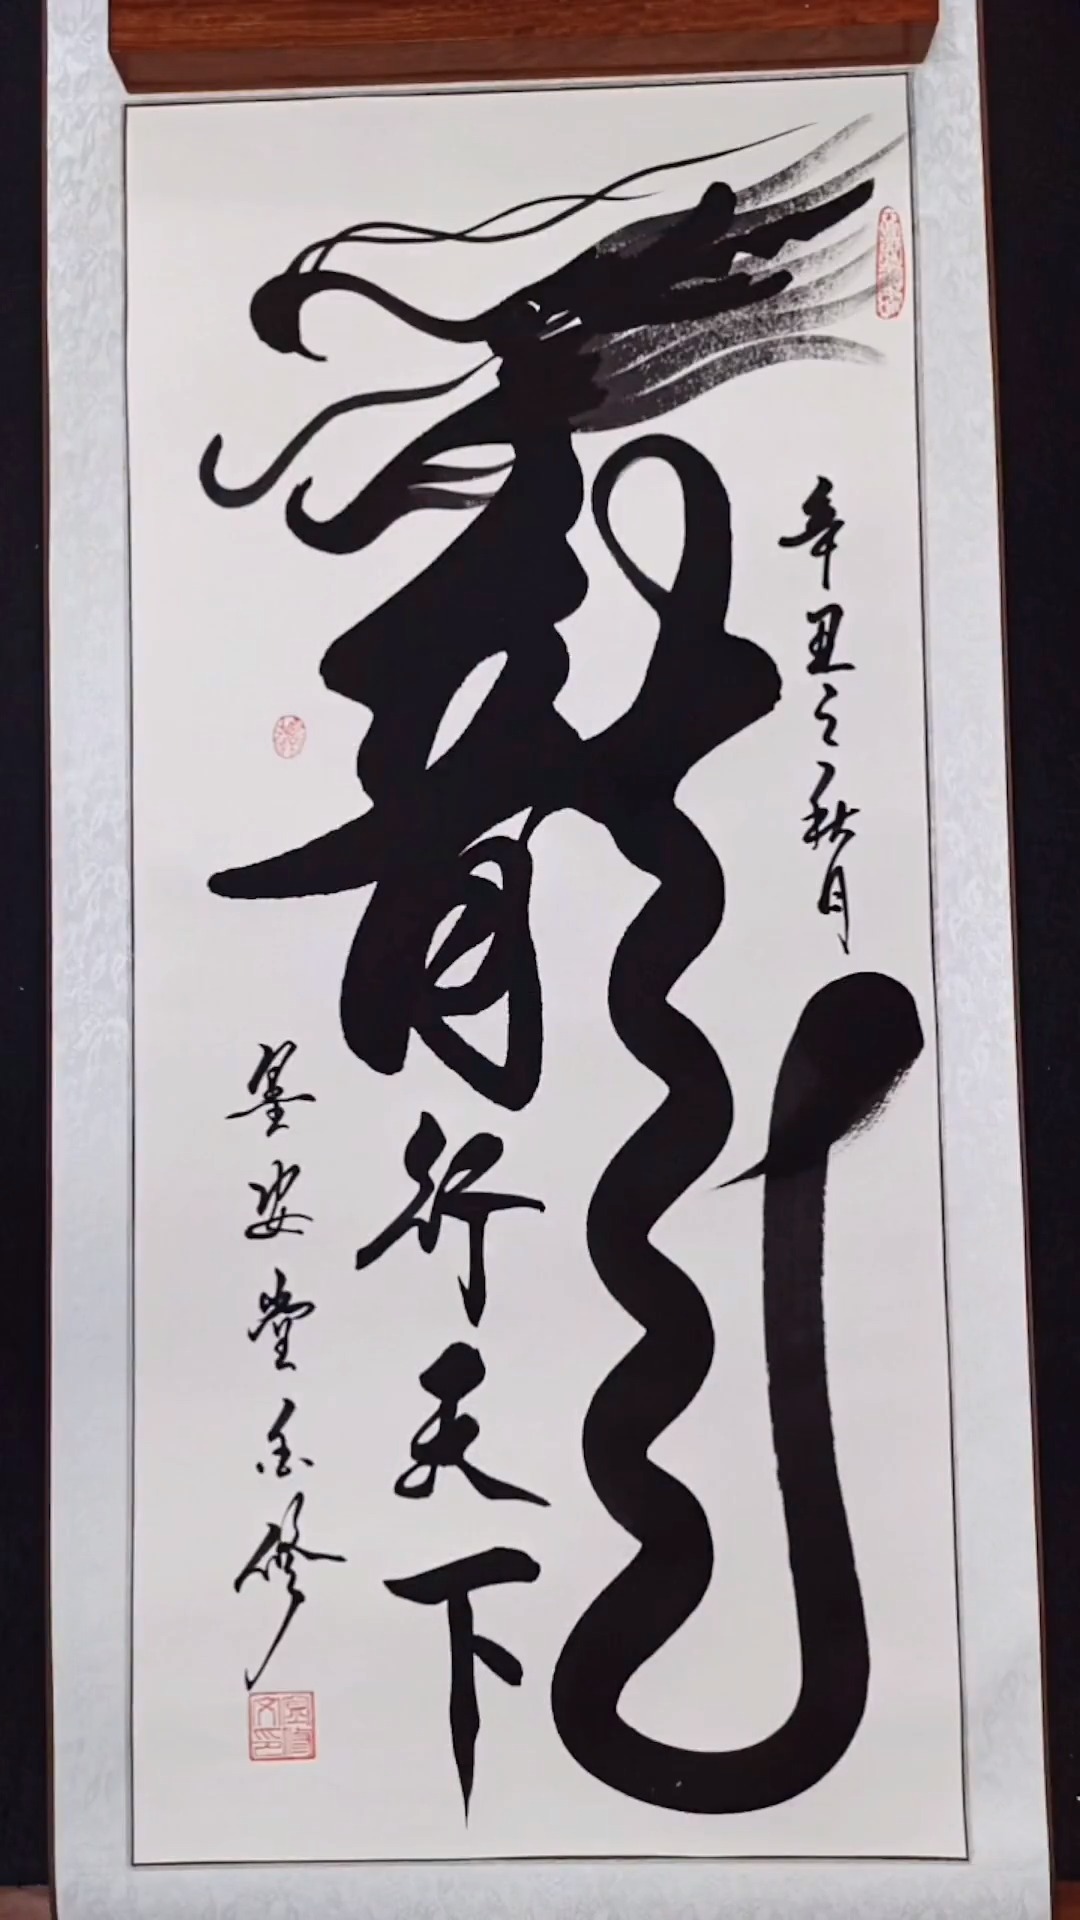 辛丑之秋月
龍
行天下
墨姿堂
修